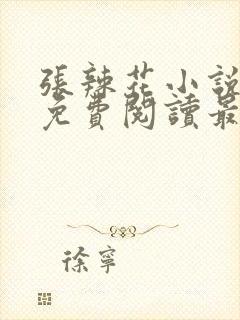 張辣花小說
免費閱讀最
徐寧